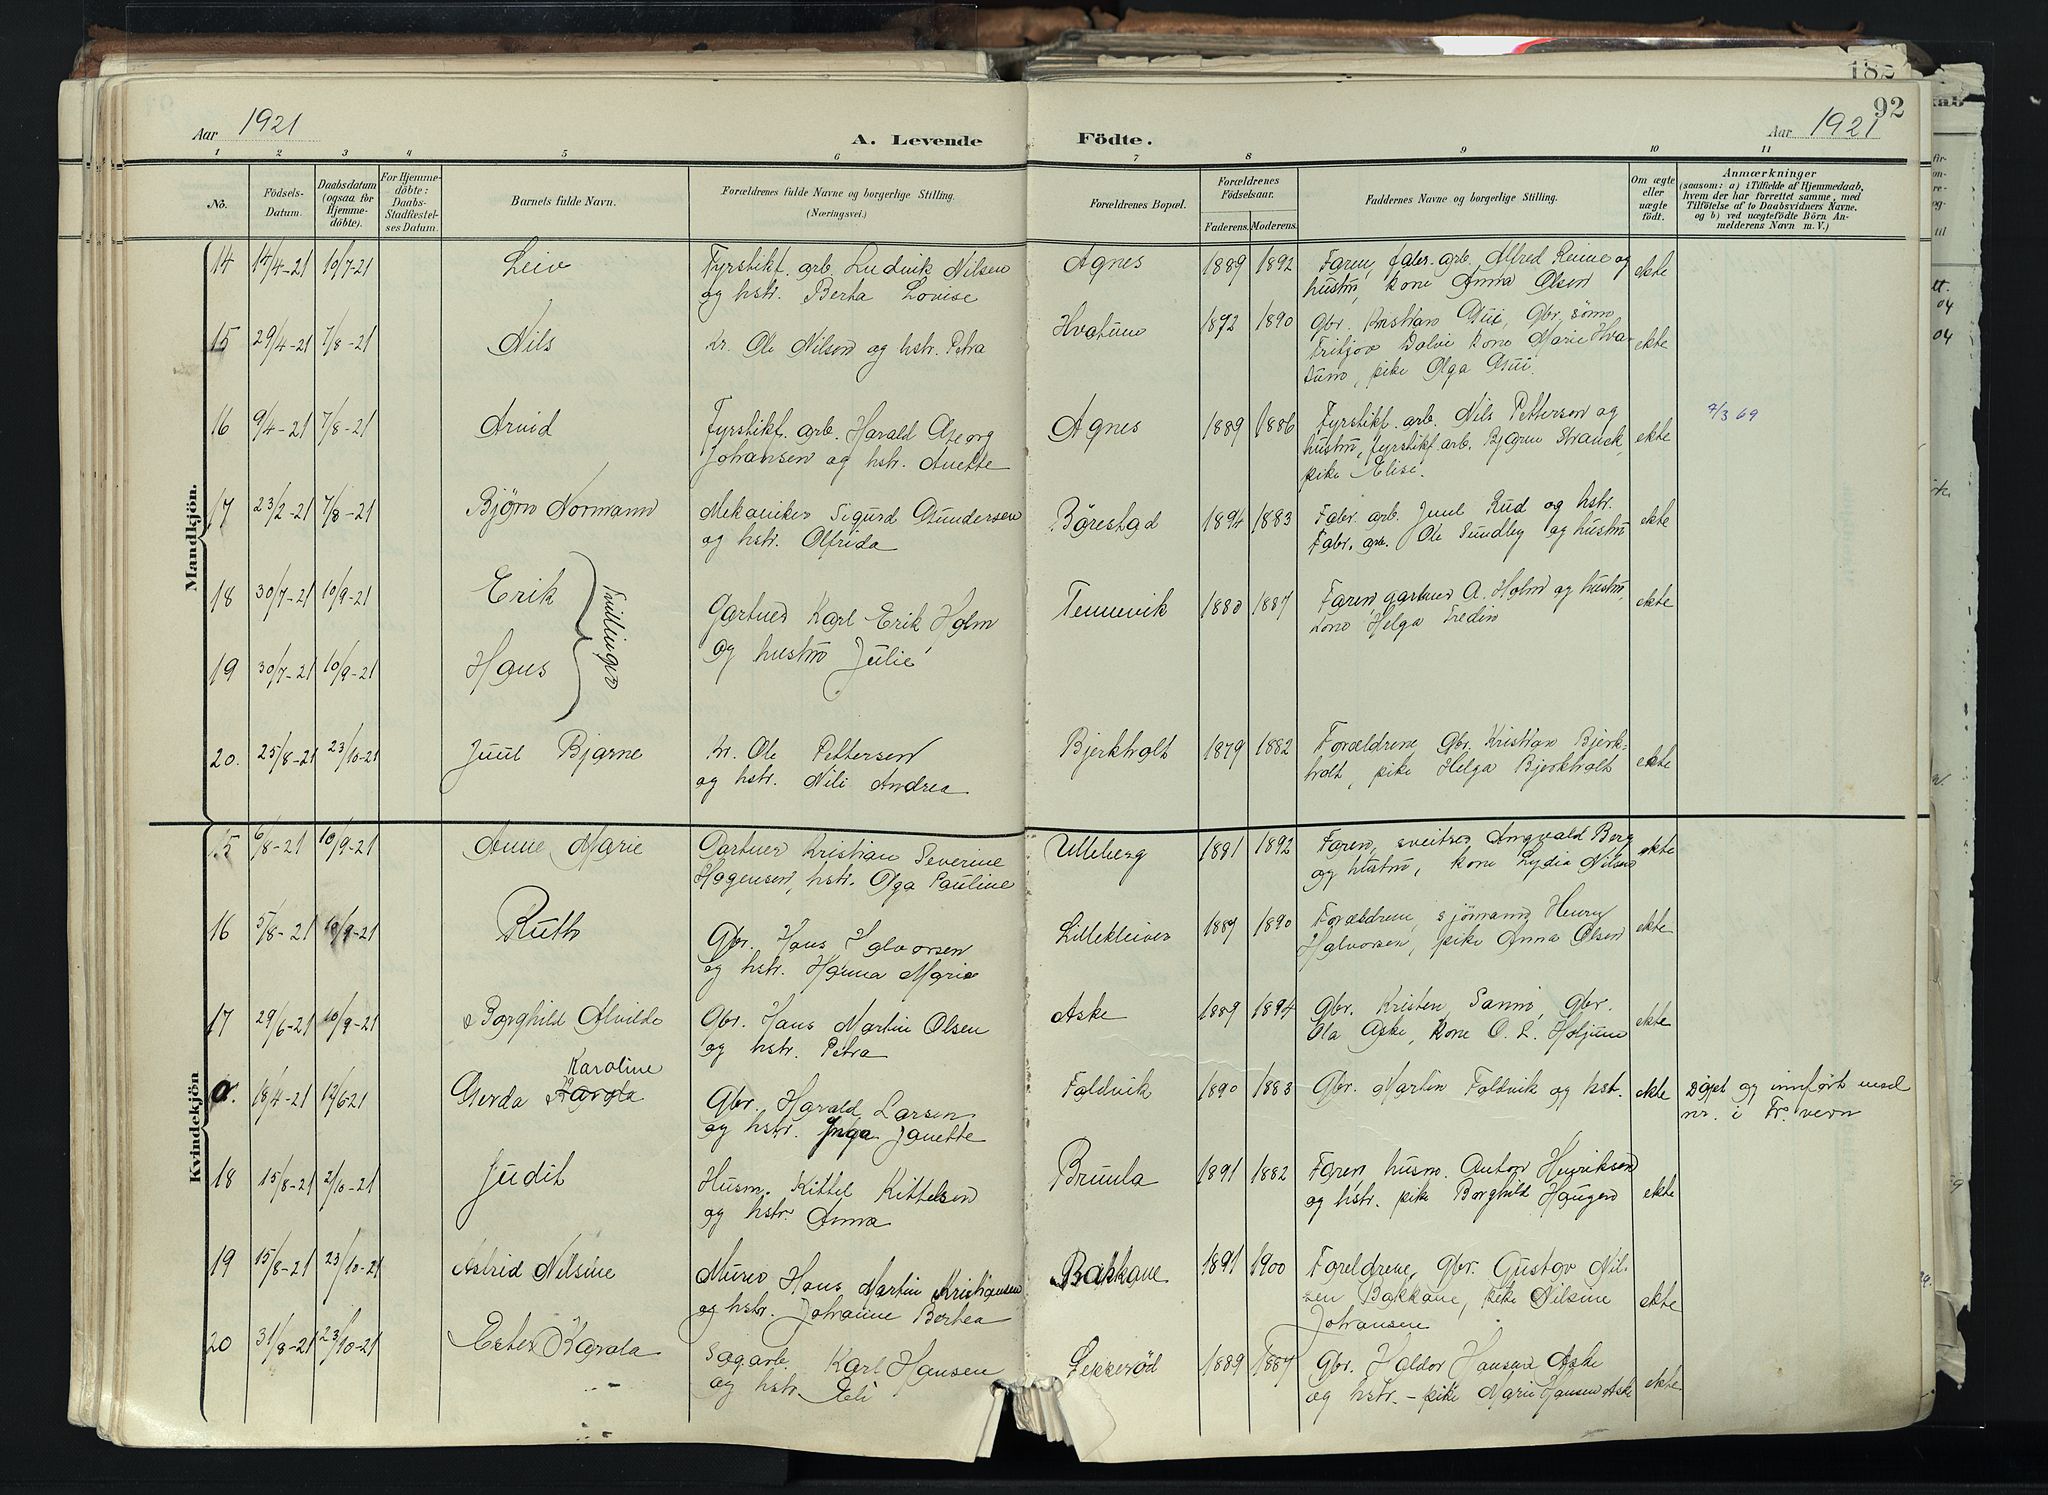 182
92
Aar 1921
A. Levende
Födte.
Aar 1921
1 2 3 4 5 6 7 8 9 10 11
No.
Födsels-Datum.
Daabsdatum (ogsaa for Hjemmedöbte).
For Hjemmedöbte: Daabs-Stadfestelses Datum.
Barnets fulde Navn.
Forældrenes fulde Navne og borgerlige Stilling. (Næringsvei.)
Forældrenes Bopæl.
Forældrenes Födselsaar.
Faderens. Moderens.
Faddernes Navne og borgerlige Stilling.
Om ægte eller uægte födt.
Anmærkninger
(saasom: a) i Tilfælde af Hjemmedaab,
hvem der har forrettet samme, med
Tilföielse af to Daabsvidners Navne.
og b) ved uægtefödte Börn An-
melderens Navn m. V.)
Mandkjön.
14 14/4-21 10/7-21 Leiv Fyrstikf. arb. Ludvik Nilsen Agnes 1889 1892 Faren, fabr. arb. Alfred og ekte
og hstr. Berta Lovise hustru, kone Anna Olsen
15 29/4-21 7/8-21 Nils Ole Nilsen og hstr. Petra Hvatum 1872 1890 Gbr. Kristian Gui, Gbr. sønn ekte
Fritjov Dalvi kone Marie Hva-
tum, pike Olga Gui.
16 9/4-21 7/8-21 Arvid Fyrstikf. arb. Harald Georg Agnes 1889 1886 Fyrstikf. arb. Nils Petterson og ekte 7/3 69
Johansen og hstr. Anette hustru, fyrstikf arb. Bjarne
pike Elise.
17 23/2-21 7/8-21 Bjørn Normann Mekaniker Sigurd Gundersen Børestad 1894 1883 Fabr. arb. Juul Rud og hstr. ekte
og hstr. Olfrida Fabr. arb. Ole Sundby og hustru
18 30/7-21 10/9-21 Erik Tvillinger Gartner Karl Erik Holm Tennevik 1880 1887 Faren gartner A. Holm og hustru, ekte
og hustru Julie kone Helga Fredin
19 30/7-21 10/9-21 Hans
20. 25/8-21 23/10-21 Juul Bjarne Ole Pettersen Bjerkholt 1879 1882 Forældrene, Gbr. Kristian Bjerk- ekte
og hstr. Nili Andrea holt, pike Helga Bjerkholt
Kvindekjön
15 6/8-21 10/9-21 Anne Marie Gartner Kristian Severine Ulleberg 1881 1892 Faren, sveitser Angvald Berg ekte
Hagensen, hstr. Olga Pauline og hustru, kone Lydia Nilsen
16 5/8-21 10/9-21 Ruth Gbr. Hans Halvorsen Lillekleiver 1887 1890 Forældrene, sjömann Henry ekte
og hstr. Hanna Marie Halvorsen, pike Anna Olsen
17 29/6-21 10/9-21 Borghild Alvilde Gbr. Hans Martin Olsen Aske 1889 1894 Gbr. Kristen Sanne, Gbr. ekte
og hstr. Petra Ola Aske, kone O. L. Holjum
Karoline
a. 18/4-21 12/6-21 Gerda Karola Gbr. Harald Larsen Faldvik 1890 1883 Gbr. Martin Foldvik og hstr. ekte Døpt og innført med
og hstr. Inga Janette nr. i Fr.vern
18 15/8-21 2/10-21 Judit Husm. Kittel Kittelsen Brunla 1891 1882 Faren, husm. Anton Henriksen ekte
og hstr. Anna og hstr. pike Borghild Haugen
19 15/8-21 23/10-21 Astrid Nilsine Murer Hans Martin Kristiansen Bakkane 1891 1900 Foreldrene, Gbr. Gustav Nil ekte
og hstr. Johanne Borhea sen Bakkane, pike Nilsine
Johansen
20 31/8-21 23/10-21 Ester Karola Sagarb. Karl Hansen Lekkerød 1889 1887 Gbr. Haldor Hansen Aske ekte
og hstr. Eli og hstr. - pike Marie Hansen Aske